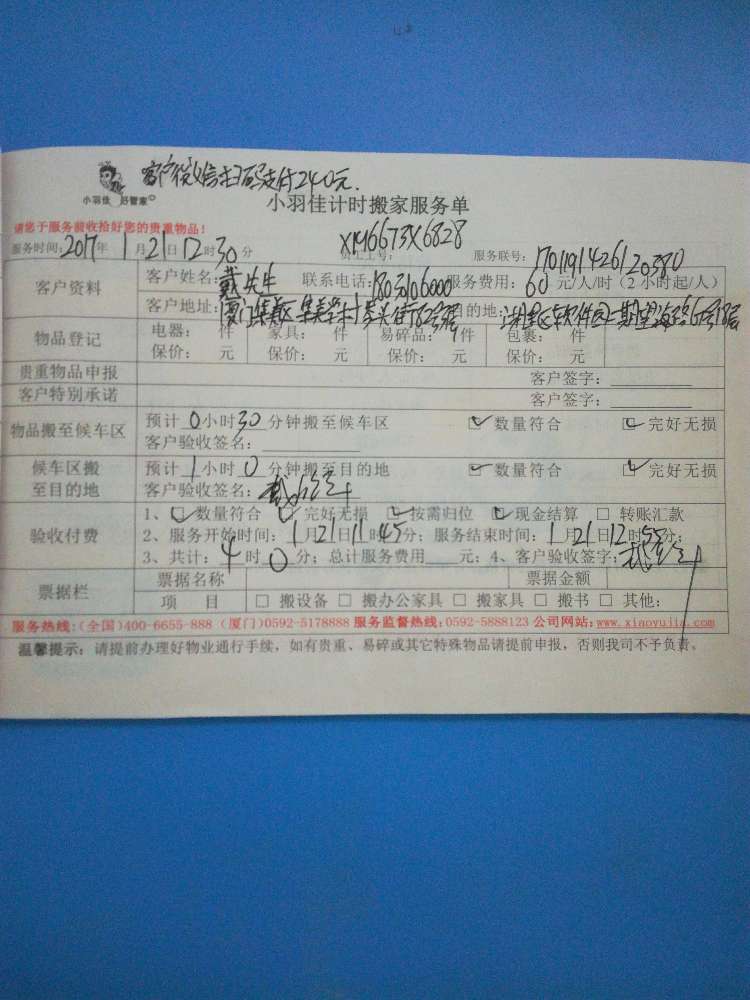 客户微信扫码支付240元.
小羽佳 好管家
小羽佳计时搬家服务单
请您于服务前收拾好您的贵重物品!
服务时间:2017年1月21日12时30分 员工工号: XM6673X6828 服务联号:
客户资料 客户姓名:戴先生 联系电话:18030106000 服务费用:60元/人/时(2小时起/人)
客户地址:厦门集美区集美学村岑头街82号 目的地:湖里区软件园二期望海路
物品登记 电器: 件 家具: 件 易碎品: 件 包裹: 件
保价: 元 保价: 元 保价: 元 保价: 元
贵重物品申报 客户签字:
客户特别承诺 客户签字:
物品搬至候车区 预计0小时30分钟搬至候车区 ☑数量符合 ☑完好无损
客户验收签名:
候车区搬至目的地 预计1小时0分钟搬至目的地 ☑数量符合 ☑完好无损
客户验收签名:
验收付费 1、☑数量符合 ☑完好无损 ☑按需归位 ☑现金结算 □转账汇款
2、服务开始时间:1月21日11时45分;服务结束时间:1月21日12时55分;
3、共计:4时0分;总计服务费用 元;4、客户验收签字:
票据栏 票据名称 票据金额
项 目 □搬设备 □搬办公家具 □搬家具 □搬书 □其他:
服务热线:(全国)400-6655-888 (厦门)0592-5178888 服务监督热线:0592-5888123 公司网站:www.xiaoyujia.com
温馨提示:请提前办理好物业通行手续,如有贵重、易碎或其它特殊物品请提前申报,否则我司不予负责。